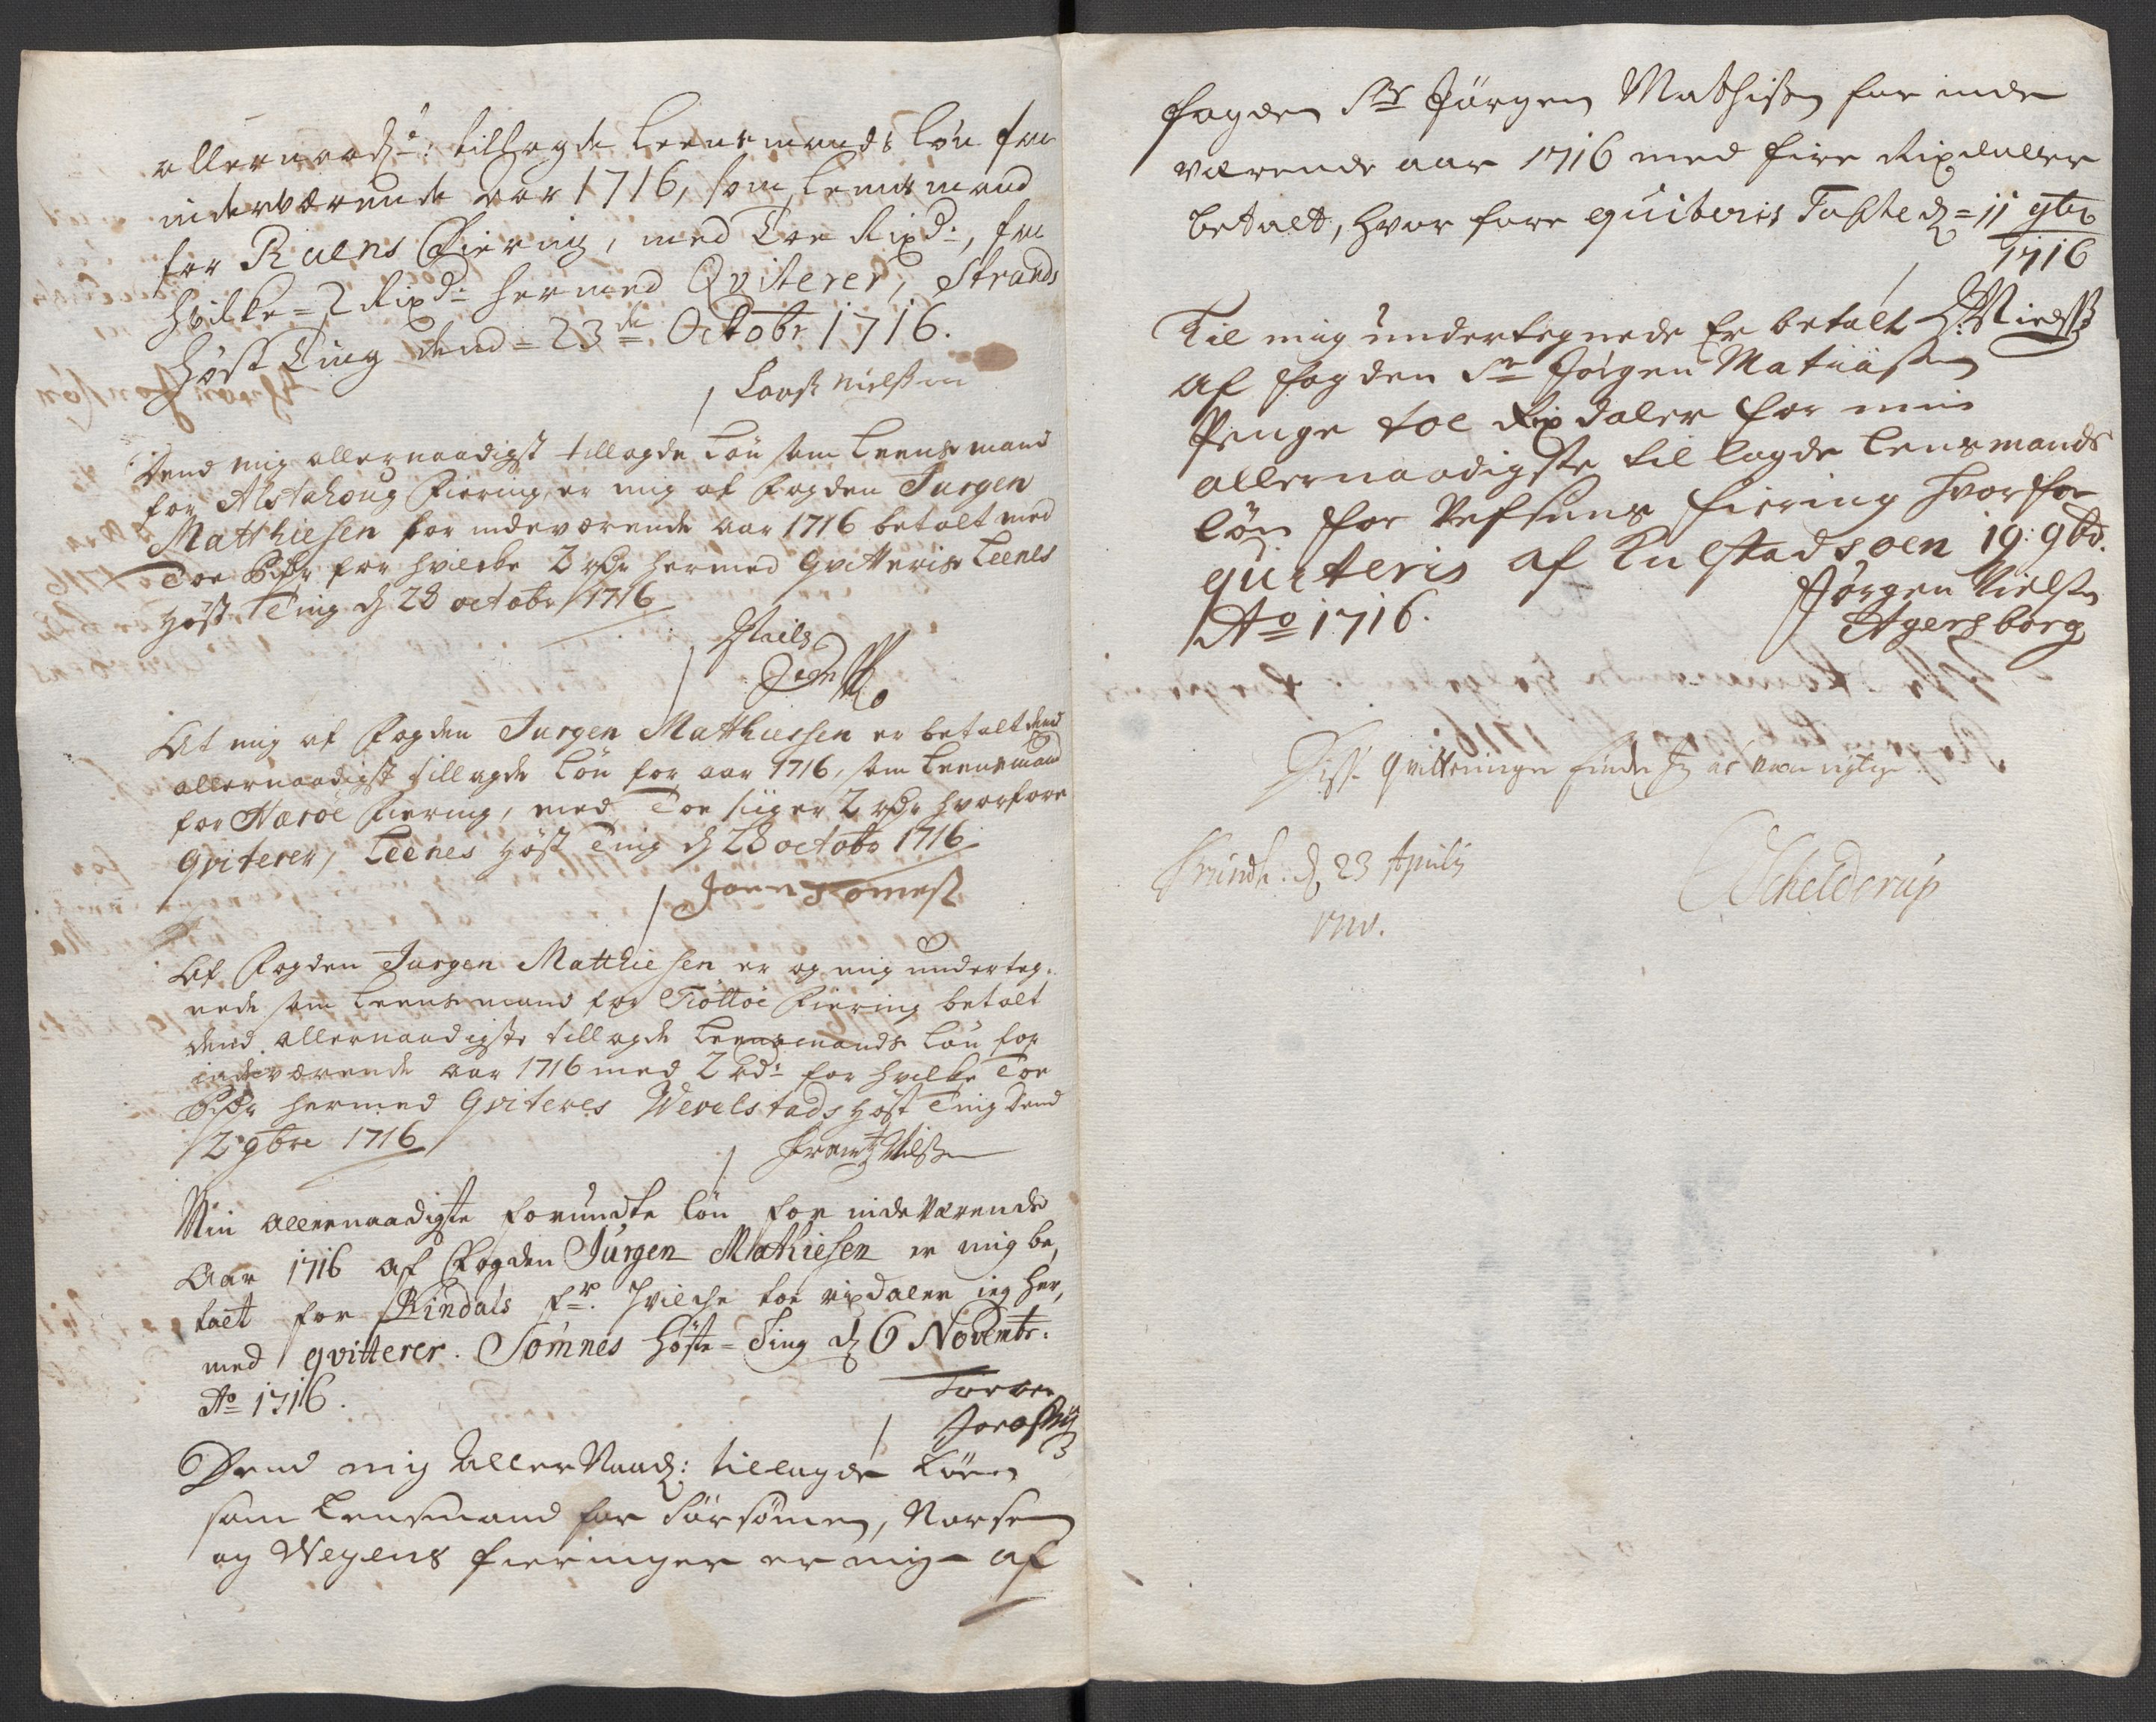 allernaadste: tillagde Leensmands løn for
inderværende aar 1716, som Lensmand
for Ruens Fiering, med Toe Rixdr, for
hvilke = 2 Rixdr hermed Qviterer, Strands
Høst Ting dend = 23de Octobr 1716.
Lars Nielssen
Dend mig allernaadigst tillagde Løn som Leensmand
for Alstahoug Fiering er mig af Fogden Jurgen
Matthiesen for indeværende aar 1716 betalt med
Toe Rdr for hvilcke 2 rdr hermed Qvitteris Leenes
Høst Ting d 28 octobr 1716
Niels
At mig af Fogden Jurgen Matthiessen er betalt dend
allernaadigst tillagde Løn for aar 1716, som Leensmand
for Herøe Fiering, med Toe siiger 2 rdr hvorfore
qviterer, Leenes Høst Ting d 28 octobr 1716
Joen Tomesz
Af Fogden Jurgen Matthiesen er og mig underteg-
nede som Leensmand for Tiøttøe Fiering betalt
dend allernaadigste tillagde Leensmands Løn for
indeværende aar 1716 med 2 rdr for hvilke Toe
Rdr hermed Qviteres Wevelstads Høst Ting dend
2 9bre 1716
Frantz Nilssen
Min allernaadigste forundte løn for indeværende
Aar 1716 af Fogden Jurgen Mathiesen er mig be,
talt for Rindals fr. hvilche toe rixdaler ieg her,
med qvitterer. Sømnes Høste-Ting d 6 Novembr:
Ao 1716.
Dend mig AllerNaad: tillagde Løn
som Lensmand for Sørsømen, Norsem
og Wegens fieringer er mig af
fogden Sr Jørgen Mathisen for inde
værende aar 1716 med fire Rixdaller
betalt, hvor fore quiteris Toftte d = 11 9br
1716
Til mig undertegnede Er betalt
af fogden Sr Jørgen Matiasen
Penge toe Rixdaler for min
allernaadigste til lagde lensmands
løn for Vefsens fiering hvorfor
quiteris af Kulstadsøen 19: 9b.
Ao 1716.
Jørgen Nielsen
Agersborg
Disse qvitteringer finder Jeg at være rigtige.
Trundh: d 23 Aprily
1718.
Schelderup